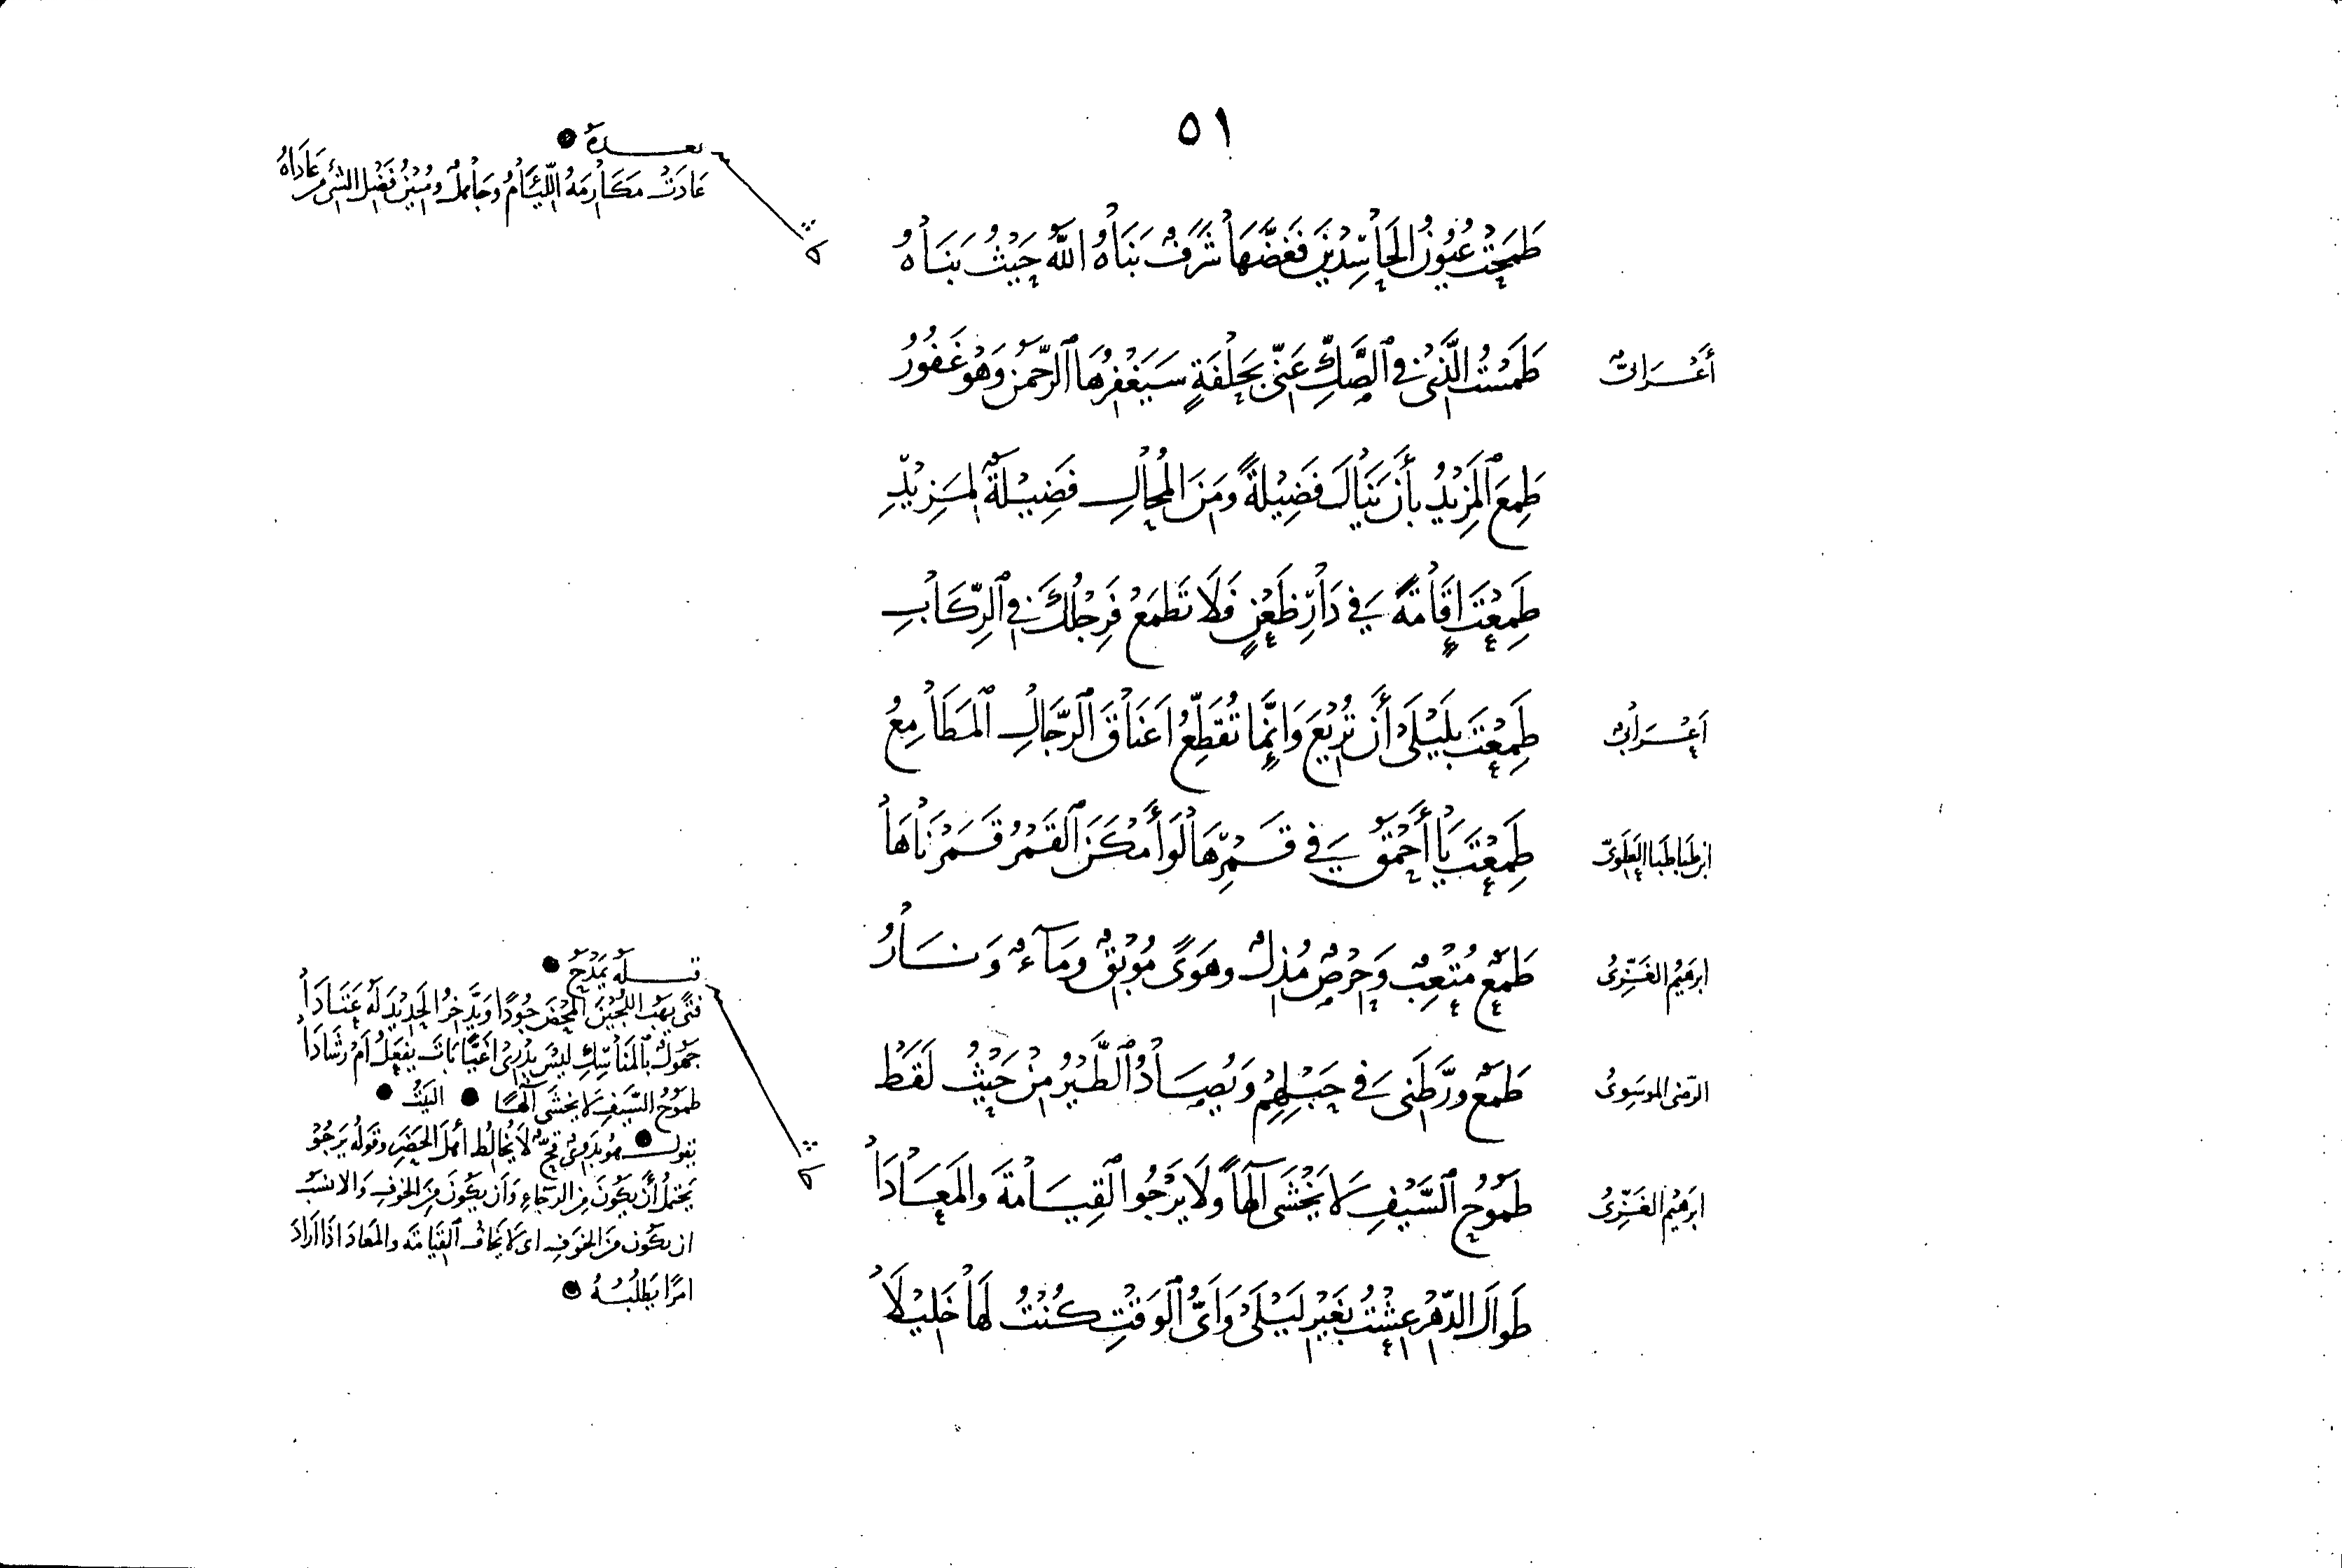 ٥١
بعده
عَادَتْ مَكَارِمَهُ اللِّئَامُ وَجَاهِلٌ وَمُبِينُ فَضْلِ الشَّيْءِ مَنْ عَادَاهُ
طَمَحَتْ عُيُونُ الْحَاسِدِيْنَ فَغَضَّهَا شَرَفٌ بَنَاهُ اللهُ حَيْثُ بَنَاهُ
أَعْرَابِيٌّ
طَمَسْتُ الَّذِيْ فِي الصَّكِّ عَنِّي بِحَلْفَةٍ سَيَغْفِرُهَا الرَّحْمٰنُ وَهُوَ غَفُوْرُ
طَمِعَ الْمَزِيْدُ بِأَنْ يَنَالَ فَضِيْلَةً وَمِنَ الْمُحَالِ فَضِيْلَةٌ لِمَزِيْدِ
طَمِعْتَ إِقَامَةً فِي دَارِ ظَعْنٍ فَلَا تَطْمَعْ فَرِجْلُكَ فِي الرِّكَابِ
أَعْرَابِيٌّ
طَمِعْتَ بِلَيْلَى أَنْ تَرِيْعَ وَإِنَّمَا تُقَطِّعُ أَعْنَاقَ الرِّجَالِ الْمَطَامِعُ
ابن طباطبا العلوي
طَمِعْتَ يَا أَحْمَقُ فِي قَمْرِهَا لَوْ أَمْكَنَ الْقَمْرُ قَمَرْنَاهَا
ابرهيم الغزي
طَمَعٌ مُتْعِبٌ وَحِرْصٌ مُذِلٌّ وَهَوًى مُوْبِقٌ وَمَآءٌ وَنَارُ
الرضى الموسوي
طَمَعٌ وَرَّطَنِي فِي حَبْلِهِمْ وَيُصَادُ الطَّيْرُ مِنْ حَيْثُ لَقَطْ
ابرهيم الغزي
طَمُوْحُ السَّيْفِ لَا يَخْشَى آلهاً وَلَا يَرْجُو الْقِيَامَةَ وَالْمَعَادَا
طَوَالَ الدَّهْرِ عِشْتُ بِغَيْرِ لَيْلَى وَأَيَّ الْوَقْتِ كُنْتُ لَهَا خَلِيْلَا
قبله يَمْدَحُ
فَتًى يَهَبُ اللُّجَيْنَ الْمَحْضَ جُوْدًا وَيَدَّخِرُ الْحَدِيْدَ لَهُ عَتَادَا
جَهُوْلٌ بِالْمَنَاسِكِ لَيْسَ يَدْرِي أَغَيًّا بَاتَ يَفْعَلُ أَمْ رَشَادَا
طَمُوْحُ السَّيْفِ لَا يَخْشَى آلهًا البَيْتُ
يقول هو بَدَوِيٌّ قُحٌّ لَا يُخَالِطُ أَهْلَ الْحَضَرِ وقَوْلُهُ يَرْجُوْ
يَحْتَمِلُ أَنْ يَكُوْنَ مِنَ الرَّجَاءِ وَأَنْ يَكُوْنَ مِنَ الْخَوْفِ وَالانسَبُ
ان يكون من الخَوْفِ اى لَا يَخَافُ الْقِيَامَةَ وَالْمَعَادَ اذَا ارَادَ
امرًا يَطْلُبُهُ